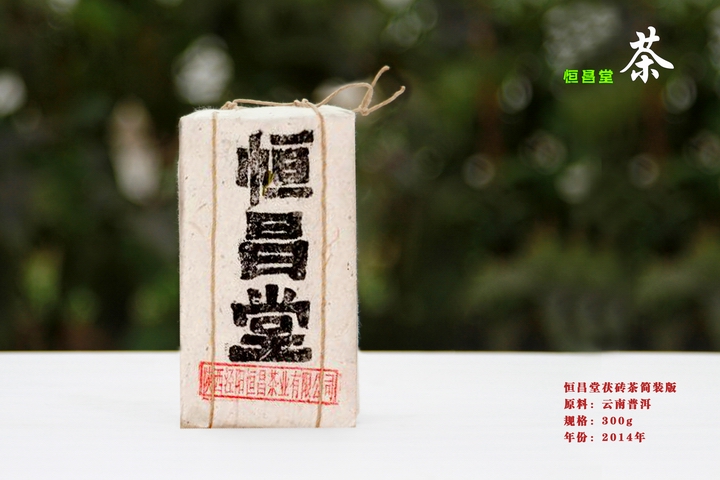 茶
恒昌堂
恒
昌
堂
陕西泾阳恒昌茶业有限公司
恒昌堂茯砖茶简装版
原料：云南普洱
规格：300g
年份：2014年